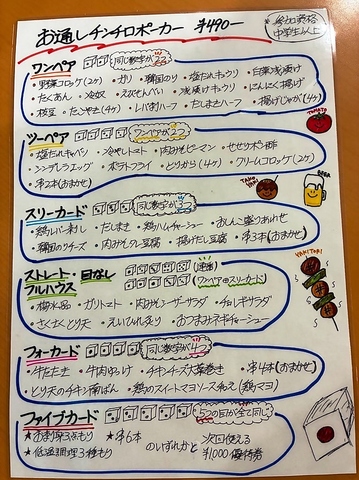 お通しチンチロポーカー ¥490-
※参加資格
中学生以上
ワンペア 同じ数字が2つ
・野菜コロッケ(2ヶ) ・ガリ ・韓国のり ・塩だれキャクリ ・白菜浅漬け
・たくあん ・冷奴 ・えびせんべい ・浅漬けキュウリ ・にんにく揚げ
・枝豆 ・たこやき(4ヶ) ・レバ刺ハーフ ・たまさきハーフ ・揚げじゃが(4ヶ)
TOMATO
ツーペア ワンペアが2つ
・塩だれキャベツ ・冷やしトマト ・肉みそピーマン ・せせりポン酢
・シンデレラエッグ ・ポテトフライ ・とりから(4ヶ) ・クリームコロッケ(2ヶ)
・串2本(おまかせ)
BEER
スリーカード 同じ数字が3つ
・鶏レバー刺し ・たまさき ・鶏ハムチャーシュー ・おしんこ盛りあわせ
・韓国のりチーズ ・肉みそクレ豆腐 ・揚げだし豆腐 ・串3本(おまかせ)
YAKITORI
ストレート・目なし (連番)
フルハウス (ワンペア⊕スリーカード)
・梅水晶 ・ガリトマト ・肉みそシーザーサラダ ・チョレギサラダ
・さくさくとり天 ・えいひれ炙り ・おつまみネギチャーシュー
フォーカード 同じ数字が4つ
・牛たたき ・牛肉ユッケ ・チキンチーズ大葉巻き ・串4本(おまかせ)
・とり天のチキン南ばん ・鶏のスイートマヨソース和え(鶏マヨ)
ファイブカード 5つの目が全て同じ
★お刺身3点もり ★串6本 のいずれかと 次回使える
★低温調理3種もり ¥1,000優待券